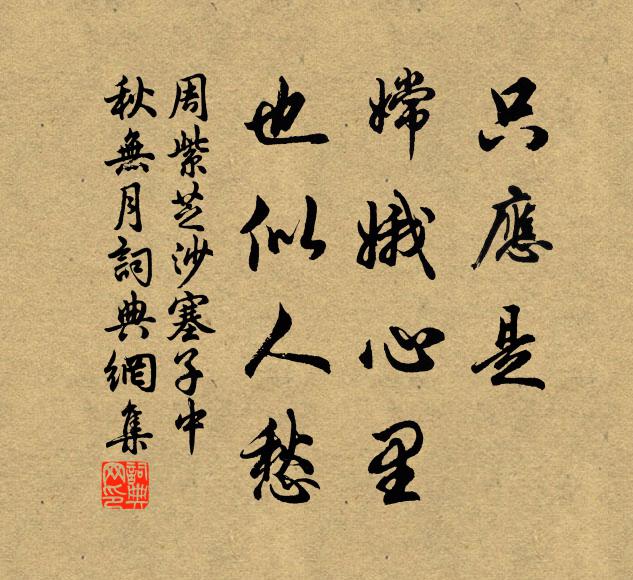 只應是
嫦娥心里
也似人愁
周紫芝沙塞子中
秋無月詞典網集
詞典网印